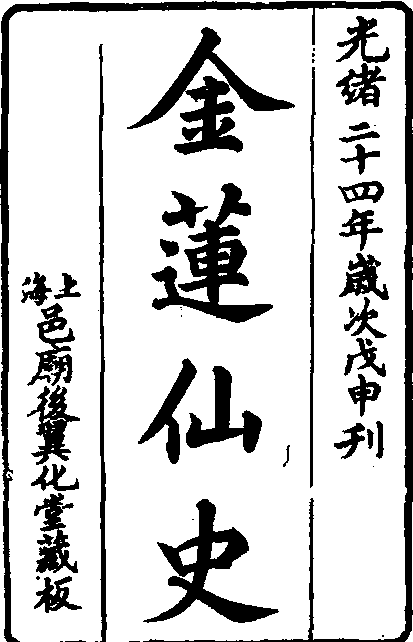 光緒二十四年歲次戊申刊
金蓮仙史
上海邑廟後翼化堂藏板